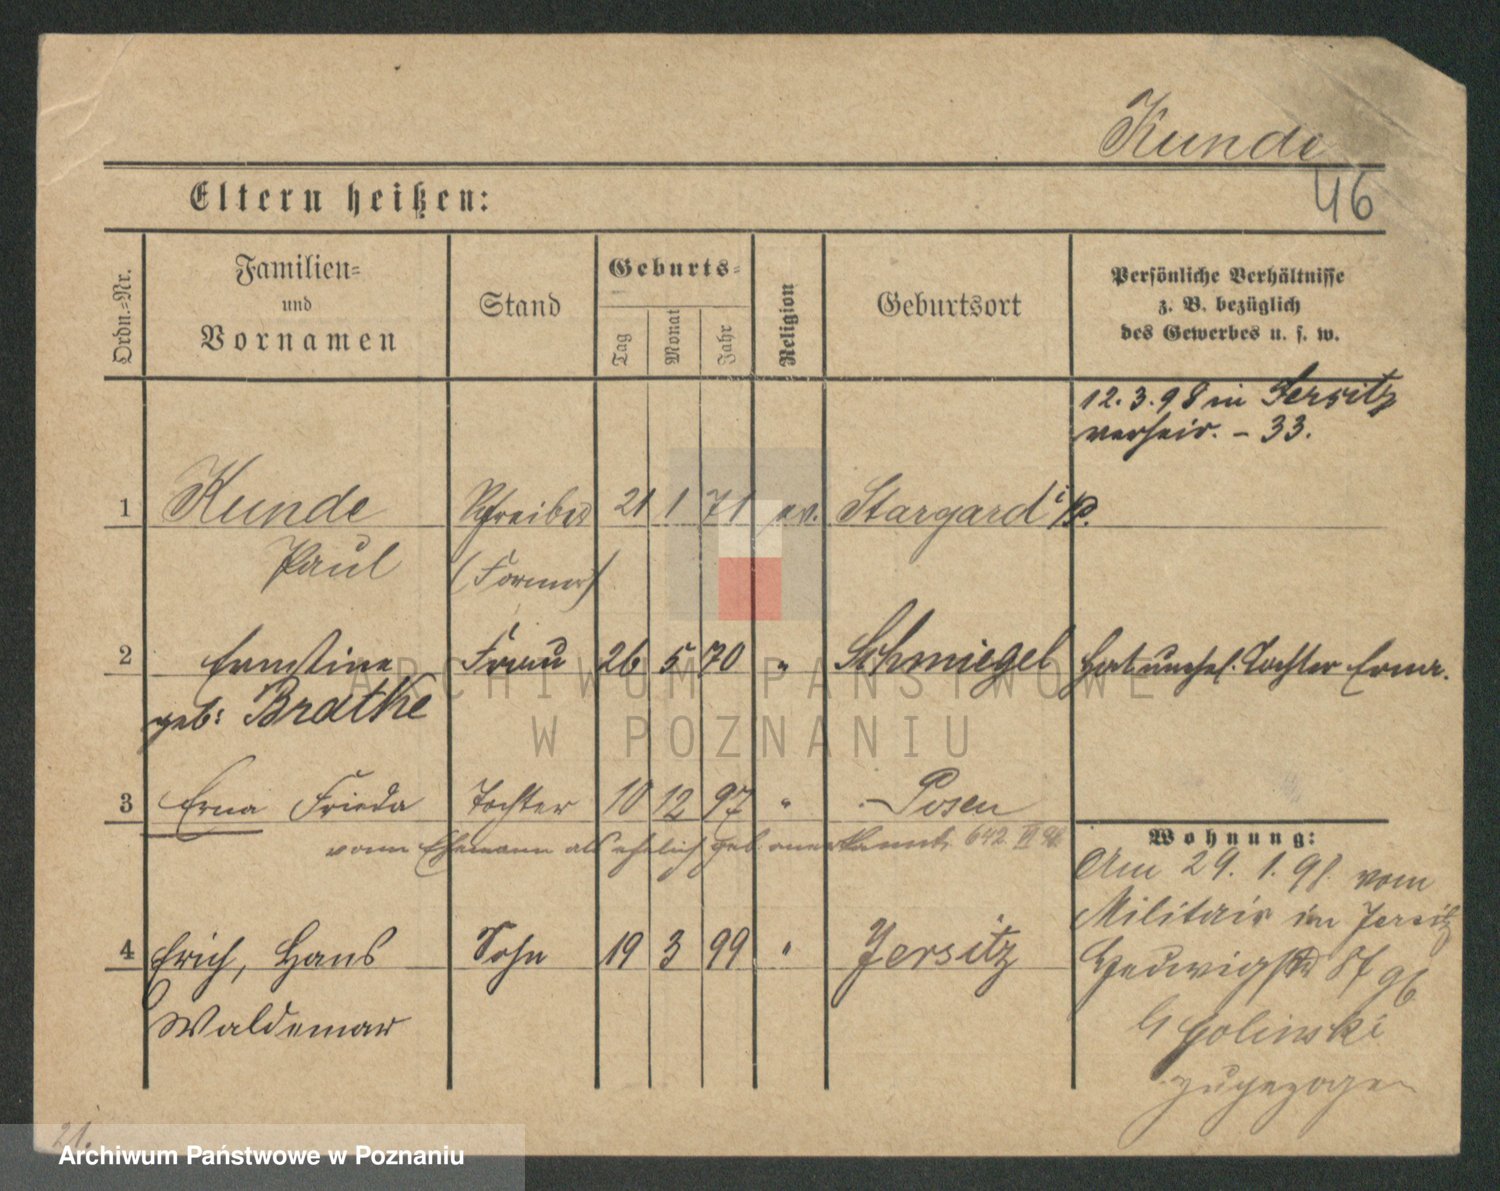 Kunde
46
Eltern heißen:
Ordn.-Nr.
Familien-
und
Vornamen
Stand
Geburts-
Tag
Monat
Jahr
Religion
Geburtsort
Persönliche Verhältnisse
z. B. bezüglich
des Gewerbes u. s. w.
12.3.98 in Jersitz
verheir. - 33.
1 Kunde Schreiber 21 1 71 ev. Stargard i/P.
Paul (Former)
2 Ernstine Frau 26 5 70 " Schmiegel Hat unehel. Tochter Erna.
geb: Bratke
ARCHIWUM PAŃSTWOWE
W POZNANIU
3 Erna Frieda Tochter 10 12 97 " Posen
vom Ehemann als ehelich geb anerkannt. 642
Wohnung:
Am 29.1.98 vom
Militair in Jersitz
4 Erich, Hans Sohn 19 3 99 " Jersitz
Hedwigstr
Waldemar
Golinski
zugezogen
21.
Archiwum Państwowe w Poznaniu